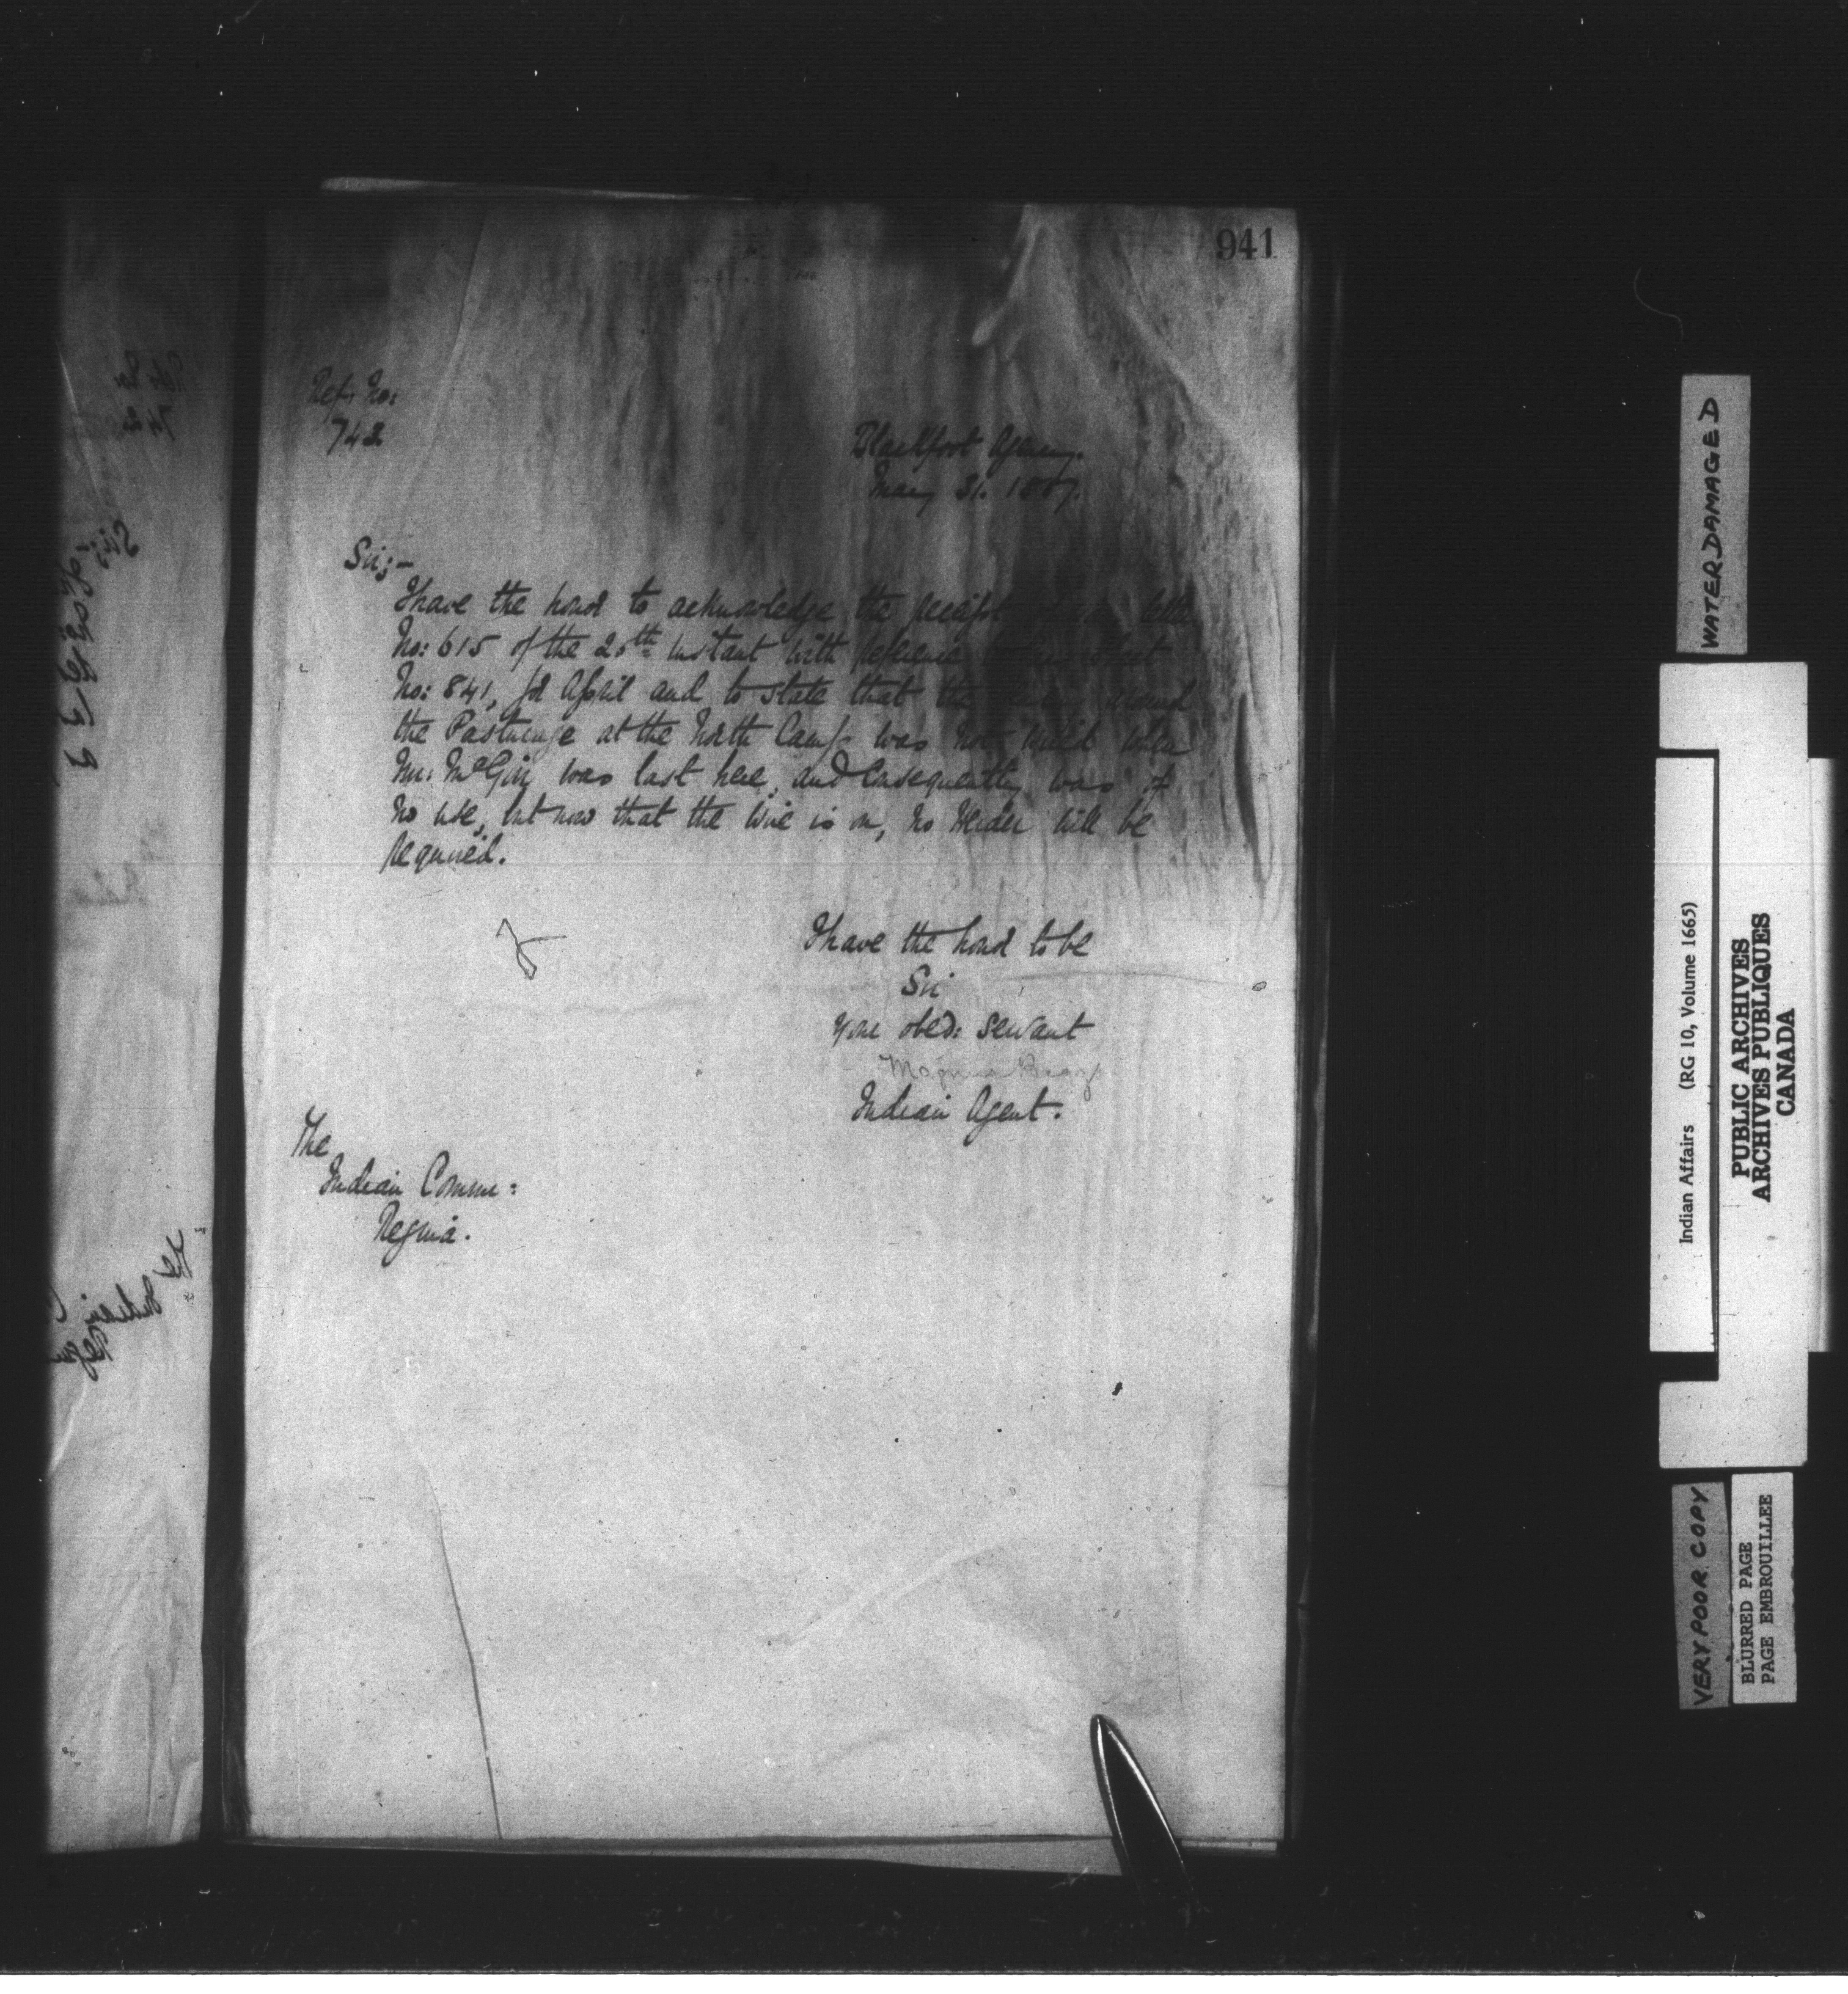 941
Ref: No:
742
Blackfoot Agency.
May 31. 1887.
Sir;-
I have the honor to acknowledge the receipt letter
No: 615 of the 20th instant with reference
No: 841, for April and to state that the
the Pasturage at the North Camp was not when
Mr. McGirr was last here, and Consequently was of
no use, but now that the wire is on, no Herder will be
required.
I have the honor to be
Sir
your obed: servant
Magnus Begg
Indian Agent.
The
Indian Comm:
Regina.
WATER DAMAGED
Indian Affairs (RG 10, Volume 1665)
PUBLIC ARCHIVES
ARCHIVES PUBLIQUES
CANADA
VERY POOR COPY
BLURRED PAGE
PAGE EMBROUILLEE